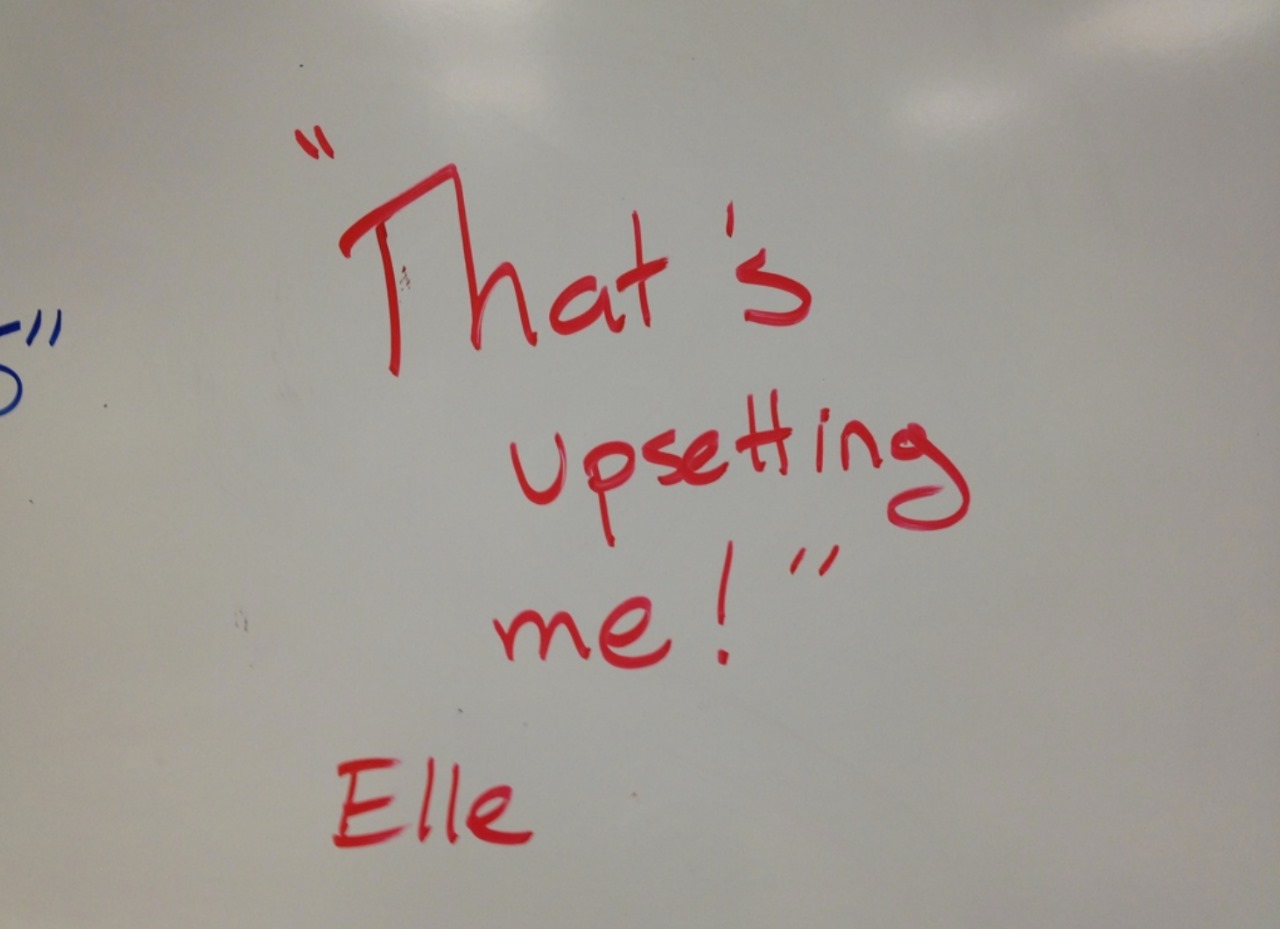 "That's
upsetting
me!"
Elle